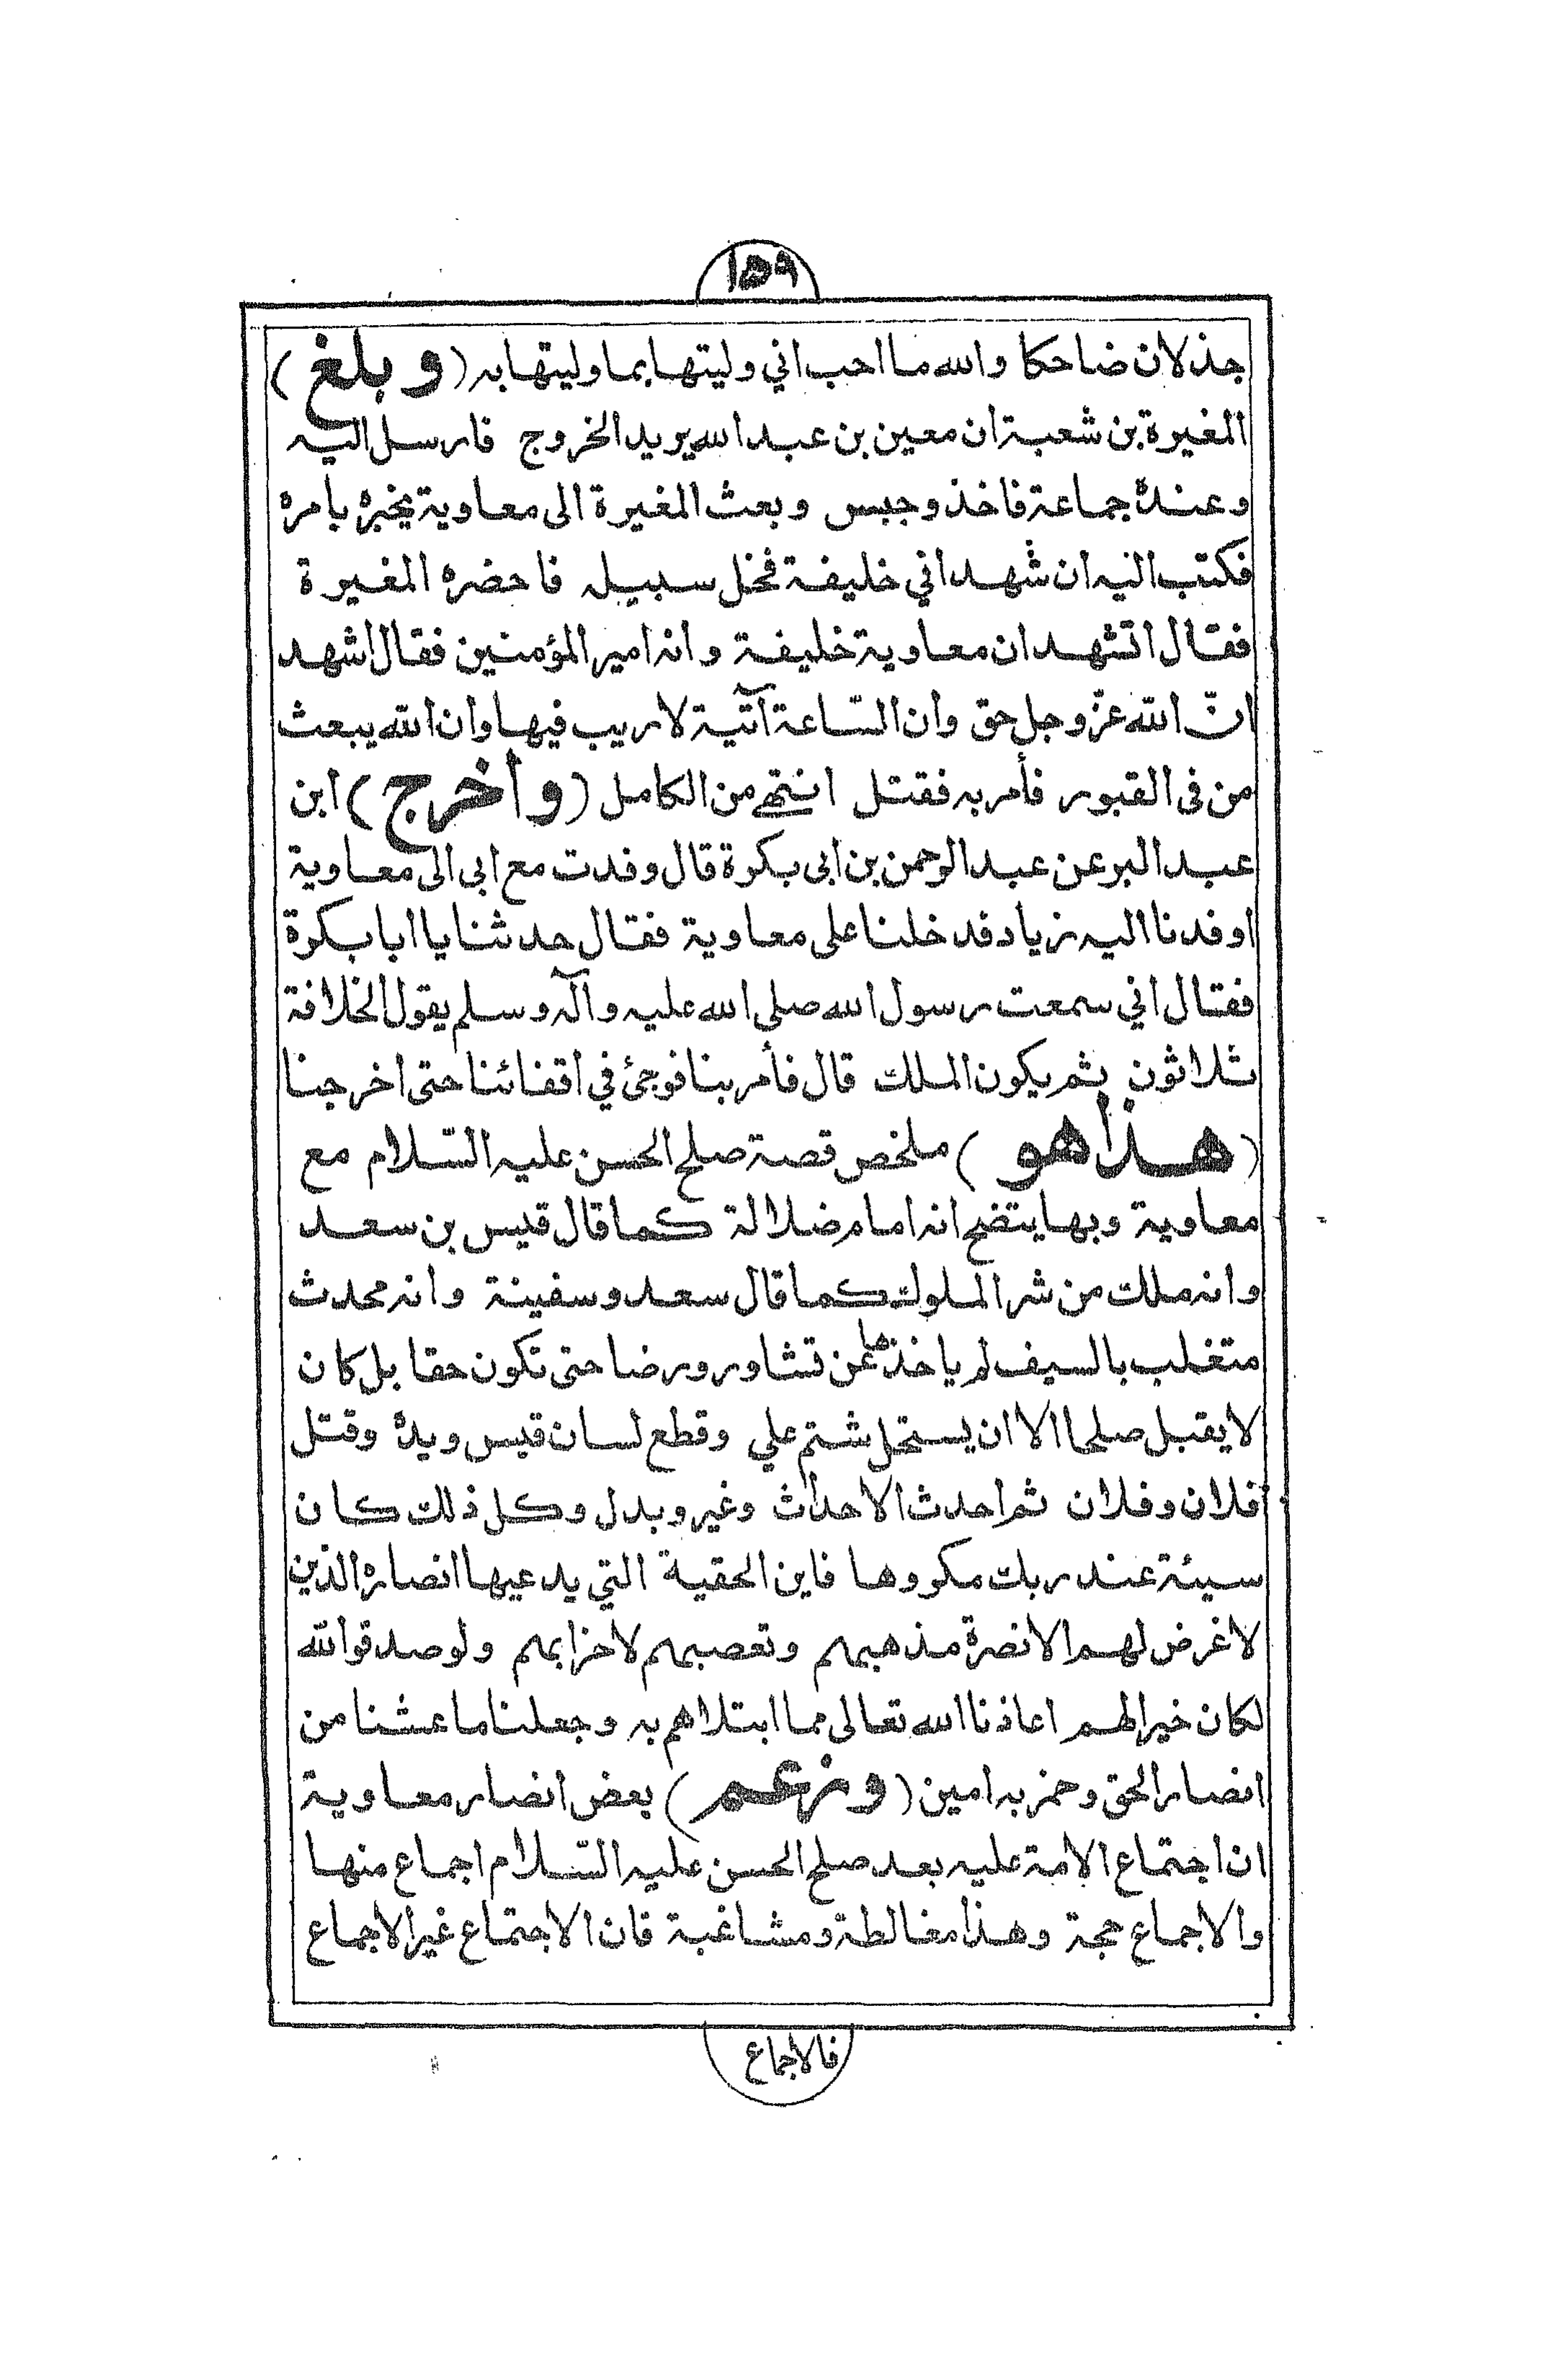 ١٥٩
جذلان ضاحكا والله ما احب اني وليتها بما وليتها به (وبلغ)
المغيرة بن شعبة ان معين بن عبد الله يريد الخروج فارسل اليه
وعنده جماعة فاخذ وحبس وبعث المغيرة الى معاوية يخبره بامره
فكتب اليه ان شهد اني خليفة فخل سبيله فاحضره المغيرة
فقال اتشهد ان معاوية خليفة وانه امير المؤمنين فقال اشهد
انّ الله عزّ وجل حق وان السّاعة آتية لا ريب فيها وان الله يبعث
من فى القبور فأمر به فقتل انتهى من الكامل (وأخرج) ابن
عبد البر عن عبد الرحمن بن ابى بكرة قال وفدت مع ابى الى معاوية
اوفدنا اليه زياد فدخلنا على معاوية فقال حدثنا يا ابا بكرة
فقال اني سمعت رسول الله صلى الله عليه وآله وسلم يقول الخلافة
ثلاثون ثم يكون الملك قال فأمر بنا فوجئ في اقفائنا حتى اخرجنا
(هذا هو) ملخص قصة صلح الحسن عليه السّلام مع
معاوية وبها يتضح انه امام ضلالة كما قال قيس بن سعد
وانه ملك من شر الملوك كما قال سعد وسفينة وانه محدث
متغلب بالسيف لم ياخذها عن تشاور ورضا حتى تكون حقا بل كان
لا يقبل صلحا الا ان يستحل شتم علي وقطع لسان قيس ويده وقتل
فلان وفلان ثم احدث الاحداث وغير وبدل وكل ذلك كان
سيئة عند ربك مكروها فاين الحقية التي يدعيها انصاره الذين
لا غرض لهم الا نصرة مذهبهم وتعصبهم لاحزابهم ولو صدقوا الله
لكان خيرا لهم اعاذنا الله تعالى مما ابتلاهم به وجعلنا ما عشنا من
انصار الحق وحزبه امين (وزعم) بعض انصار معاوية
ان اجتماع الامة عليه بعد صلح الحسن عليه السّلام اجماع منها
والاجماع حجة وهذا مغالطة ومشاغبة فان الاجتماع غير الاجماع
فالاجماع